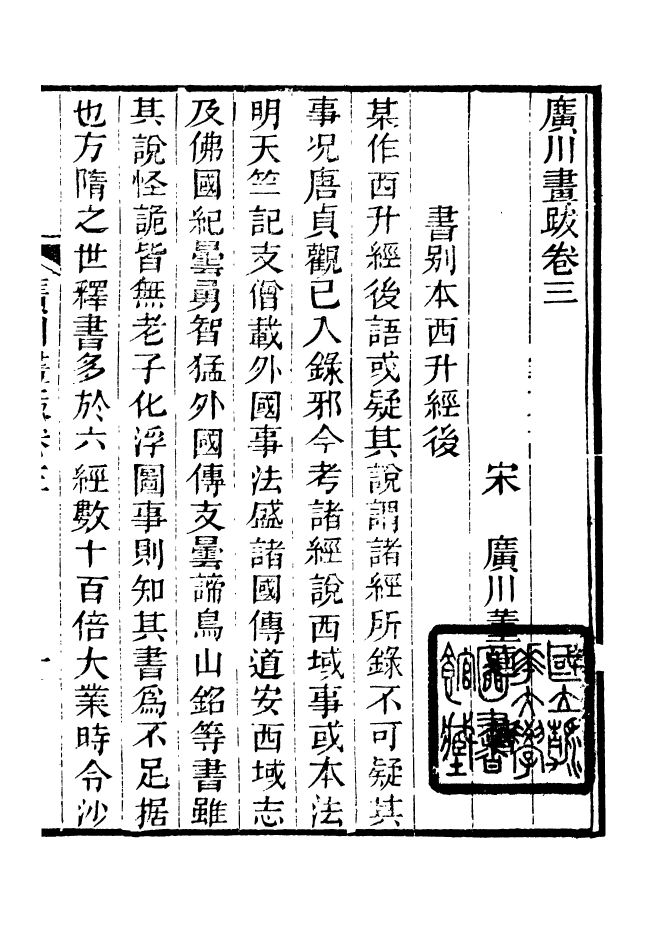 廣川畫跋卷三
宋　廣川董
書别本西升經後
某作西升經後語或疑其說謂諸經所錄不可疑其
事况唐貞觀已入錄邪今考諸經說西域事或本法
明天竺記支僧載外國事法盛諸國傳道安西域志
及佛國紀曇勇智猛外國傳支曇諦烏山銘等書雖
其說怪詭皆無老子化浮圖事則知其書爲不足據
也方隋之世釋書多於六經數十百倍大業時令沙
國立
大學
圖書
館藏